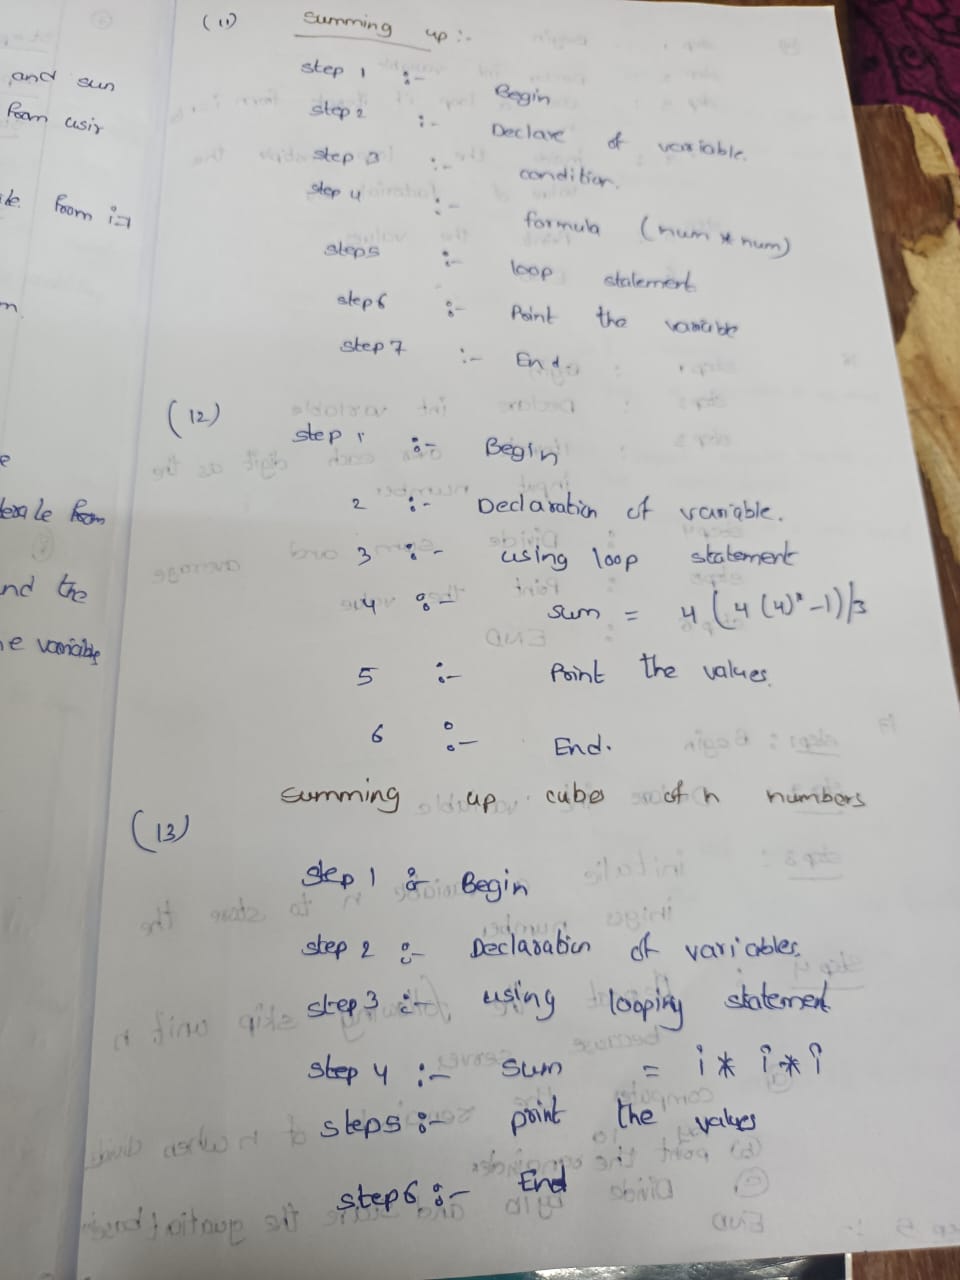 and sun
from usin
from i=1
(11) Summing up :-
step 1 :- Begin
step 2 :- Declare of variable.
step 3 :- condition.
step 4 :- formula (num * num)
step5 :- loop statement
step6 :- Point the variable
step 7 :- End.
(12)
step 1 :- Begin
2 :- Declaration of variable.
3 :- using loop statement
4 :- sum = 4 (4 (4)² -1)/3
5 :- Point the values.
6 :- End.
from
nd the
e variable
summing up cubes of n numbers
(13)
Step 1 :- Begin
step 2 :- Declaration of variables.
step3 :- using looping statement
step 4 :- sum = i * i * i
step5 :- print the values
step6 :- End